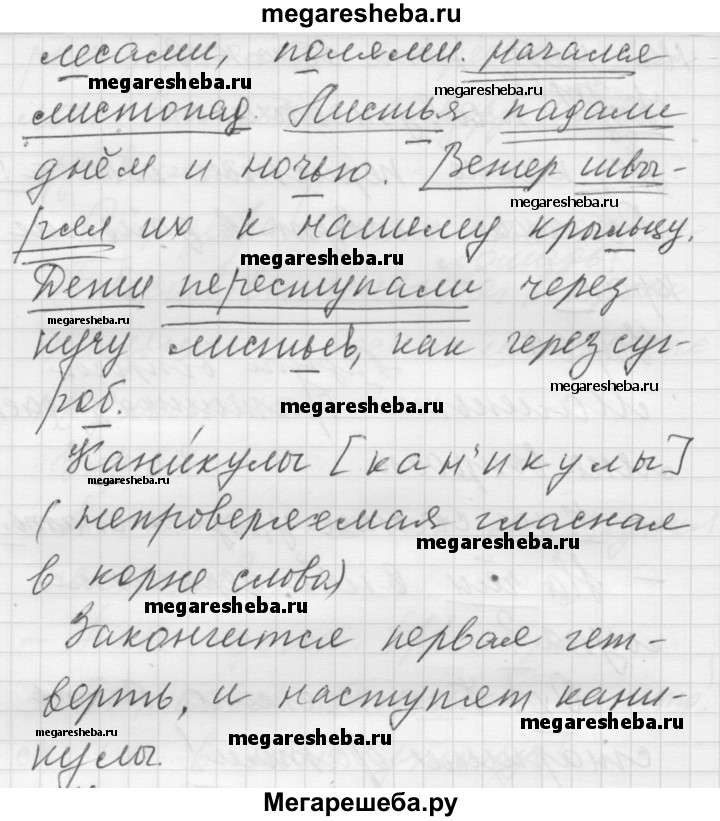 megaresheba.ru
лесами, полями. Начался
megaresheba.ru megaresheba.ru
листопад. Листья падали
днём и ночью. Ветер швы-
megaresheba.ru
рял их к нашему крыльцу.
megaresheba.ru
Дети переступали через
megaresheba.ru
кучу листьев, как через суг-
megaresheba.ru
роб. megaresheba.ru
Кани́кулы [кан'икулы]
megaresheba.ru
(непроверяемая гласная
megaresheba.ru
в корне слова)
megaresheba.ru
Закончится первая чет-
верть, и наступят кани-
megaresheba.ru megaresheba.ru megaresheba.ru
кулы.
Мегарешеба.ру